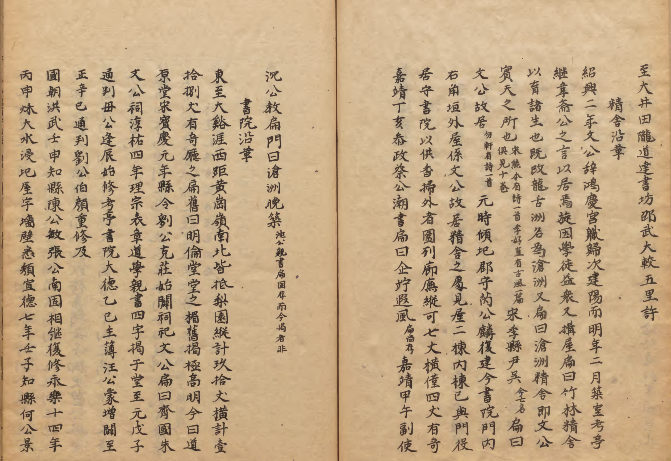 至大井田隴道達書坊邵武大較五里許
精舍沿革
紹興二年文公辭鴻慶宮職歸次建陽而明年二月築室考亭
繼韋齋公之言以居焉旋因學徒益衆又搆屋扁曰竹林精舍
以育諸生也既改龍舌洲名為滄洲又扁曰滄洲精舍即文公
賓天之所也宋熊禾有詩一首李好有古風一篇俱見十卷宋季縣尹吳扁曰
文公故居軒有詩一首元時傾圮郡守公麟復建今書院門內
右垣外屋係文公故居精舍之處見屋二棟內棟已與門役
居守書院以供香掃外者圍列廊廡縱可七丈橫僅四丈有奇
嘉靖丁亥叅政蔡公潮書扁曰企竚遐風扁尚存嘉靖甲午副使
沉公教扁門曰滄洲晚築沈公親書扁固存而今揭者非
書院沿革
東至大谿涯西距黃崗嶺南北皆抵梨園縱計玖拾丈橫計壹
拾捌丈有奇廳之扁舊曰明倫堂堂之楣舊揭極高明今曰道
原堂宋寶慶元年縣令劉公克莊始闢祠祀文公扁曰齊國朱
文公祠淳祐四年理宗表章道學親書四字揭于堂至元戊子
通判毋公逢辰始修考亭書院大德乙巳主薄汪公蒙增闢至
正辛巳通判劉公伯顏重修及
國朝洪武壬申知縣陳公敏張公南固相繼復修永樂十四年
丙申烁大水浸圮屋宇墻壁悉頹宣德七年壬子知縣何公景